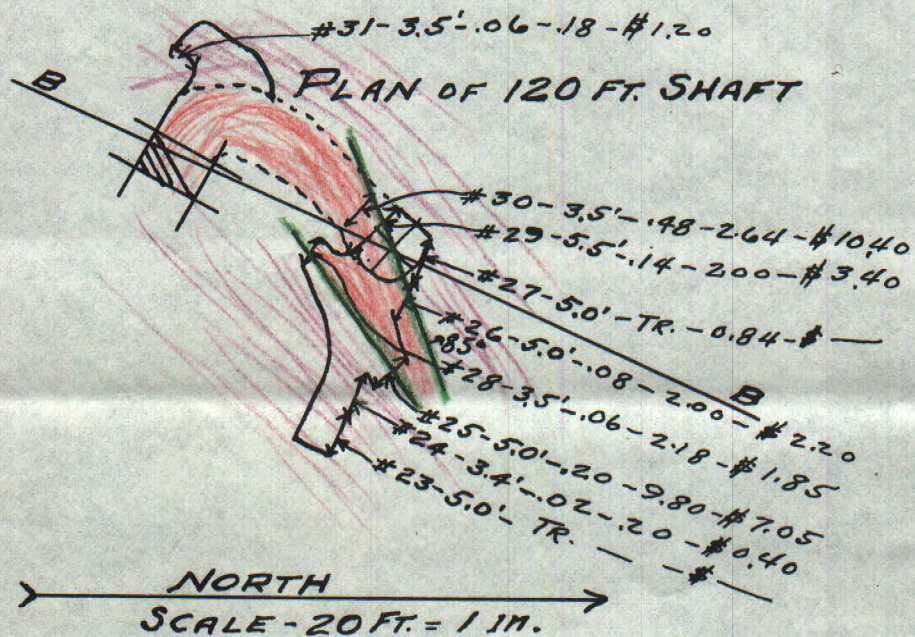 #31-3.5'-.06-.18-$1.20
B
PLAN OF 120 FT. SHAFT
#30-3.5'-.48-2.64-$10.40
#29-5.5'-.14-2.00-$3.40
#27-5.0'-TR.-0.84-$ —
#26-5.0'-.08-2.00-$2.20
85°
#28-3.5'-.06-2.18-$1.85
B
#25-5.0'-.20-9.80-$7.05
#24-3.4'-.02-.20-$0.40
#23-5.0'-TR. — -$ —
NORTH
SCALE-20 FT. = 1 IN.